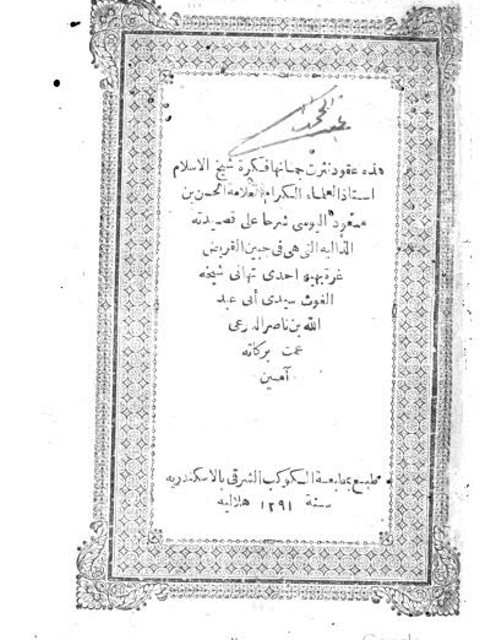 هذه عقود نثرت جمانها فكرة شيخ الاسلام
استاذ العلماء الكرام العلامة الحسن بن
مسعود اليوسى شرحا على قصيدته
الداليه التى هى فى جبين القريض
غرة بهيه احدى تهانى شيخه
الغوث سيدى أبى عبد
الله بن ناصر الدرعى
عمت بركاته
آمين
طبع بمطبعة الكوكب الشرقى بالاسكندريه
سنة ١٢٩١ هلاليه
Google